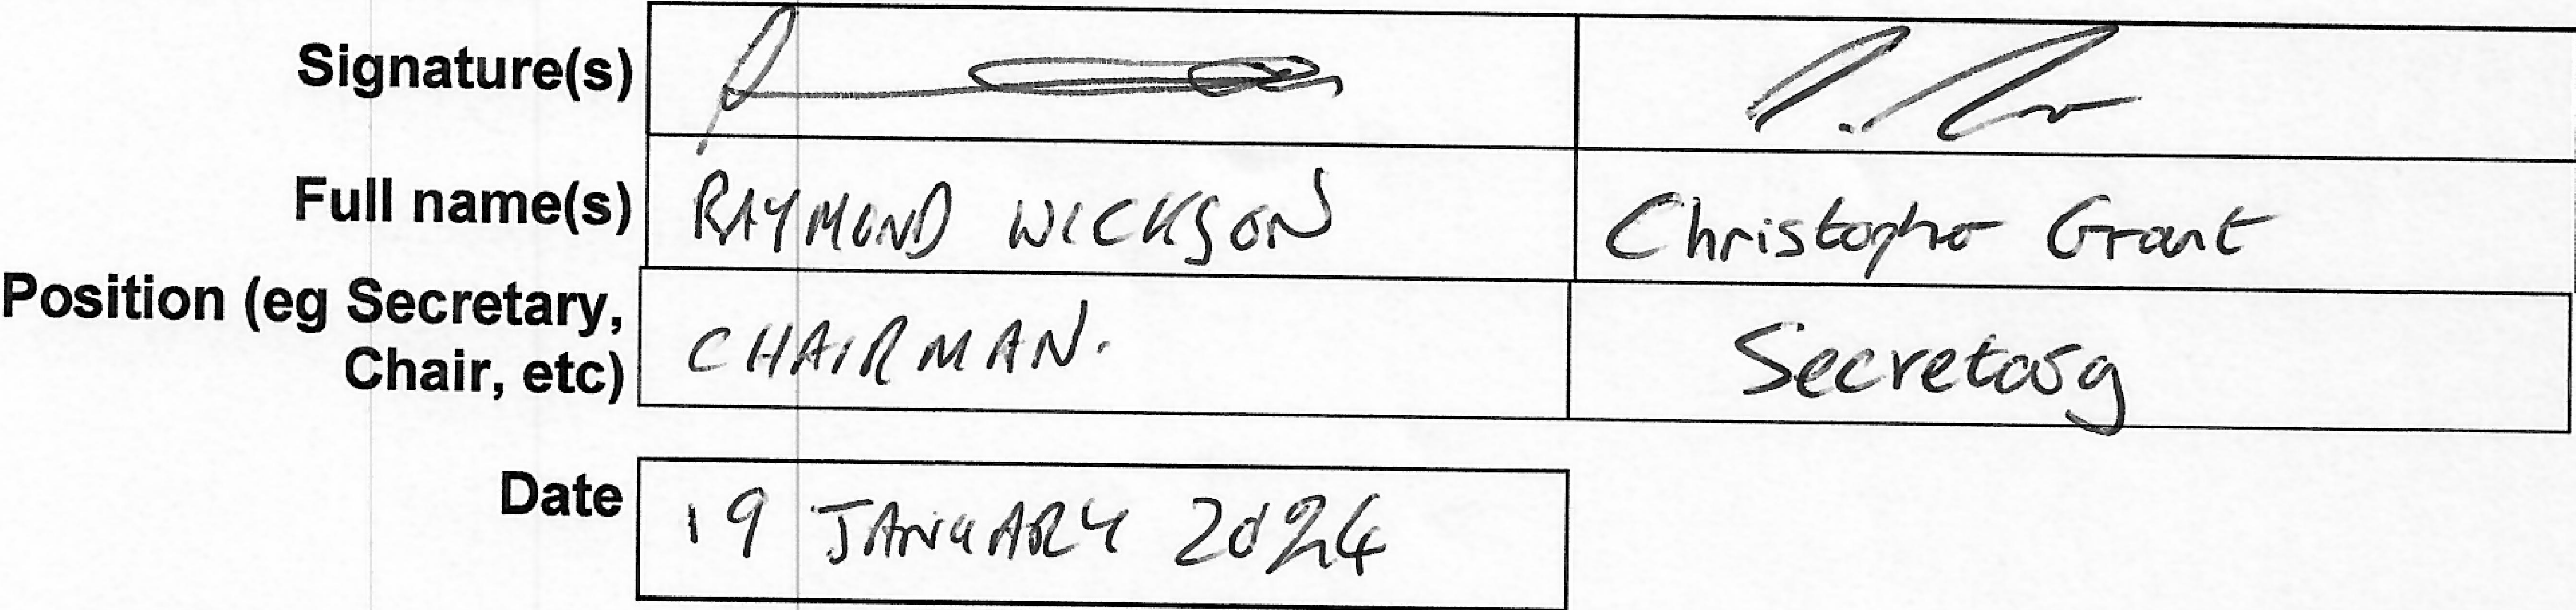 Signature(s)
Full name(s) RAYMOND WICKSON Christopher Grant
Position (eg Secretary,
Chair, etc) CHAIRMAN. Secretary
Date 19 JANUARY 2024